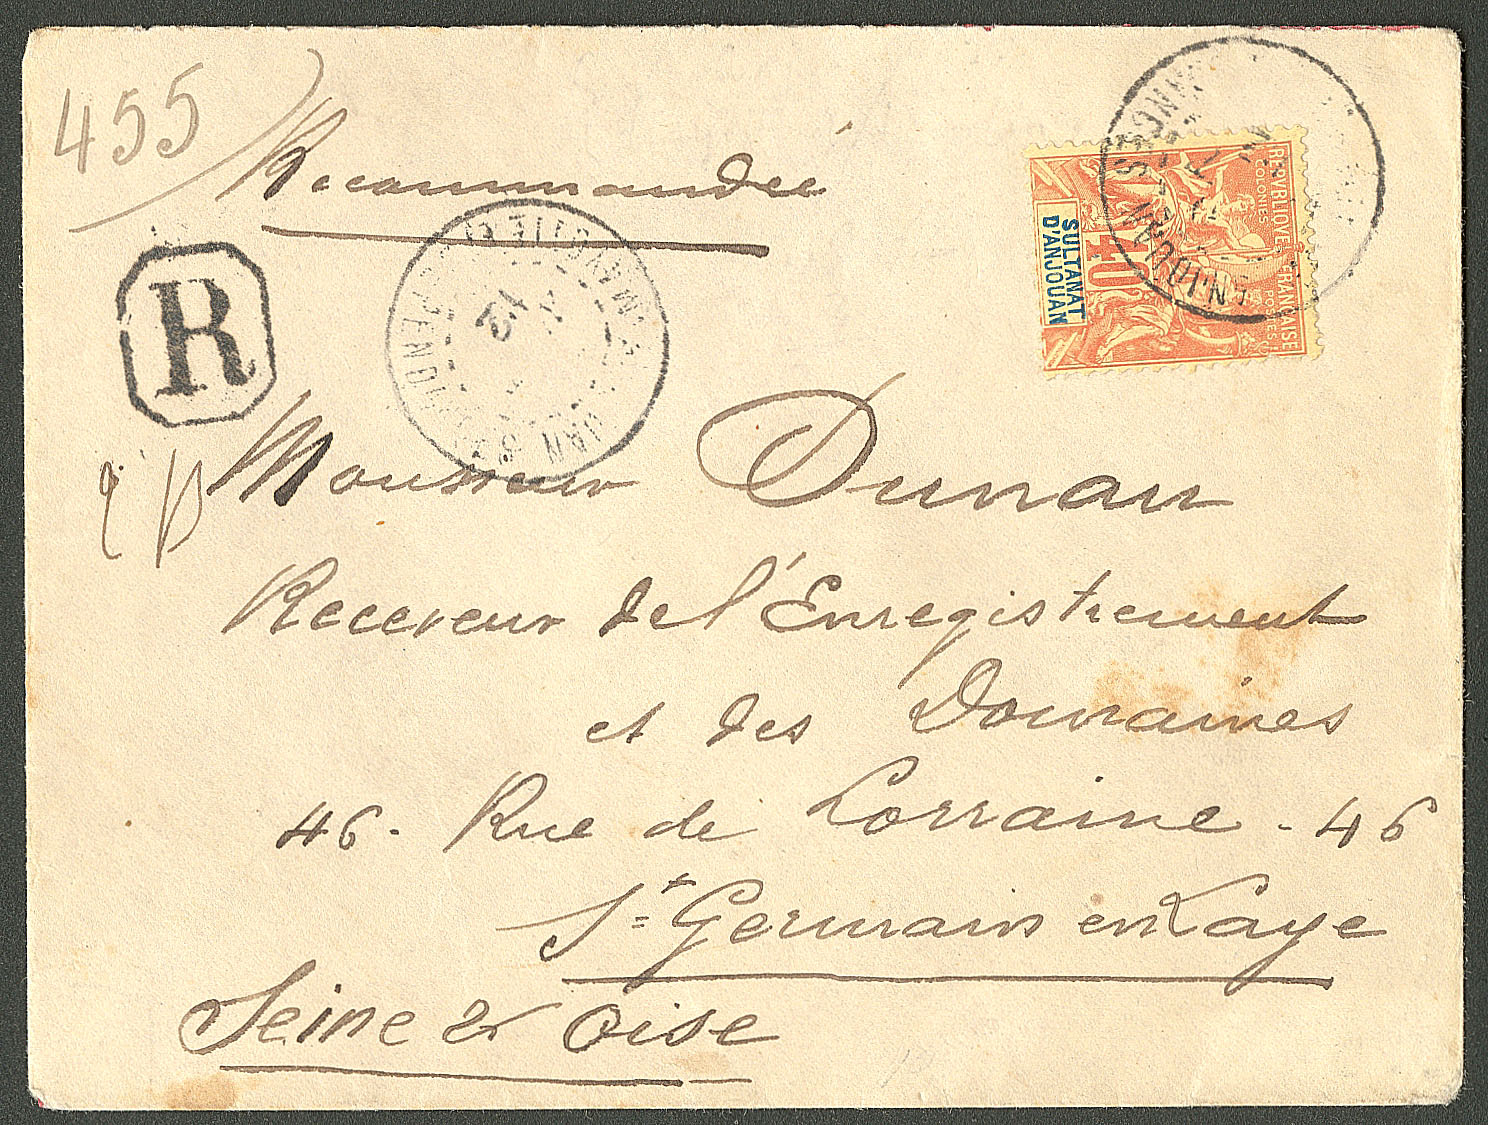 455
Recommandée
R
SULTANAT
D'ANJOUAN
40
REPVBLIQVE FRANÇAISE
COLONIES POSTES
ANJOUAN
MAYOTTE
Monsieur Dunan
Receveur de l'Enregistrement
et des Domaines
46. Rue de Lorraine - 46
St Germain en Laye
Seine & Oise